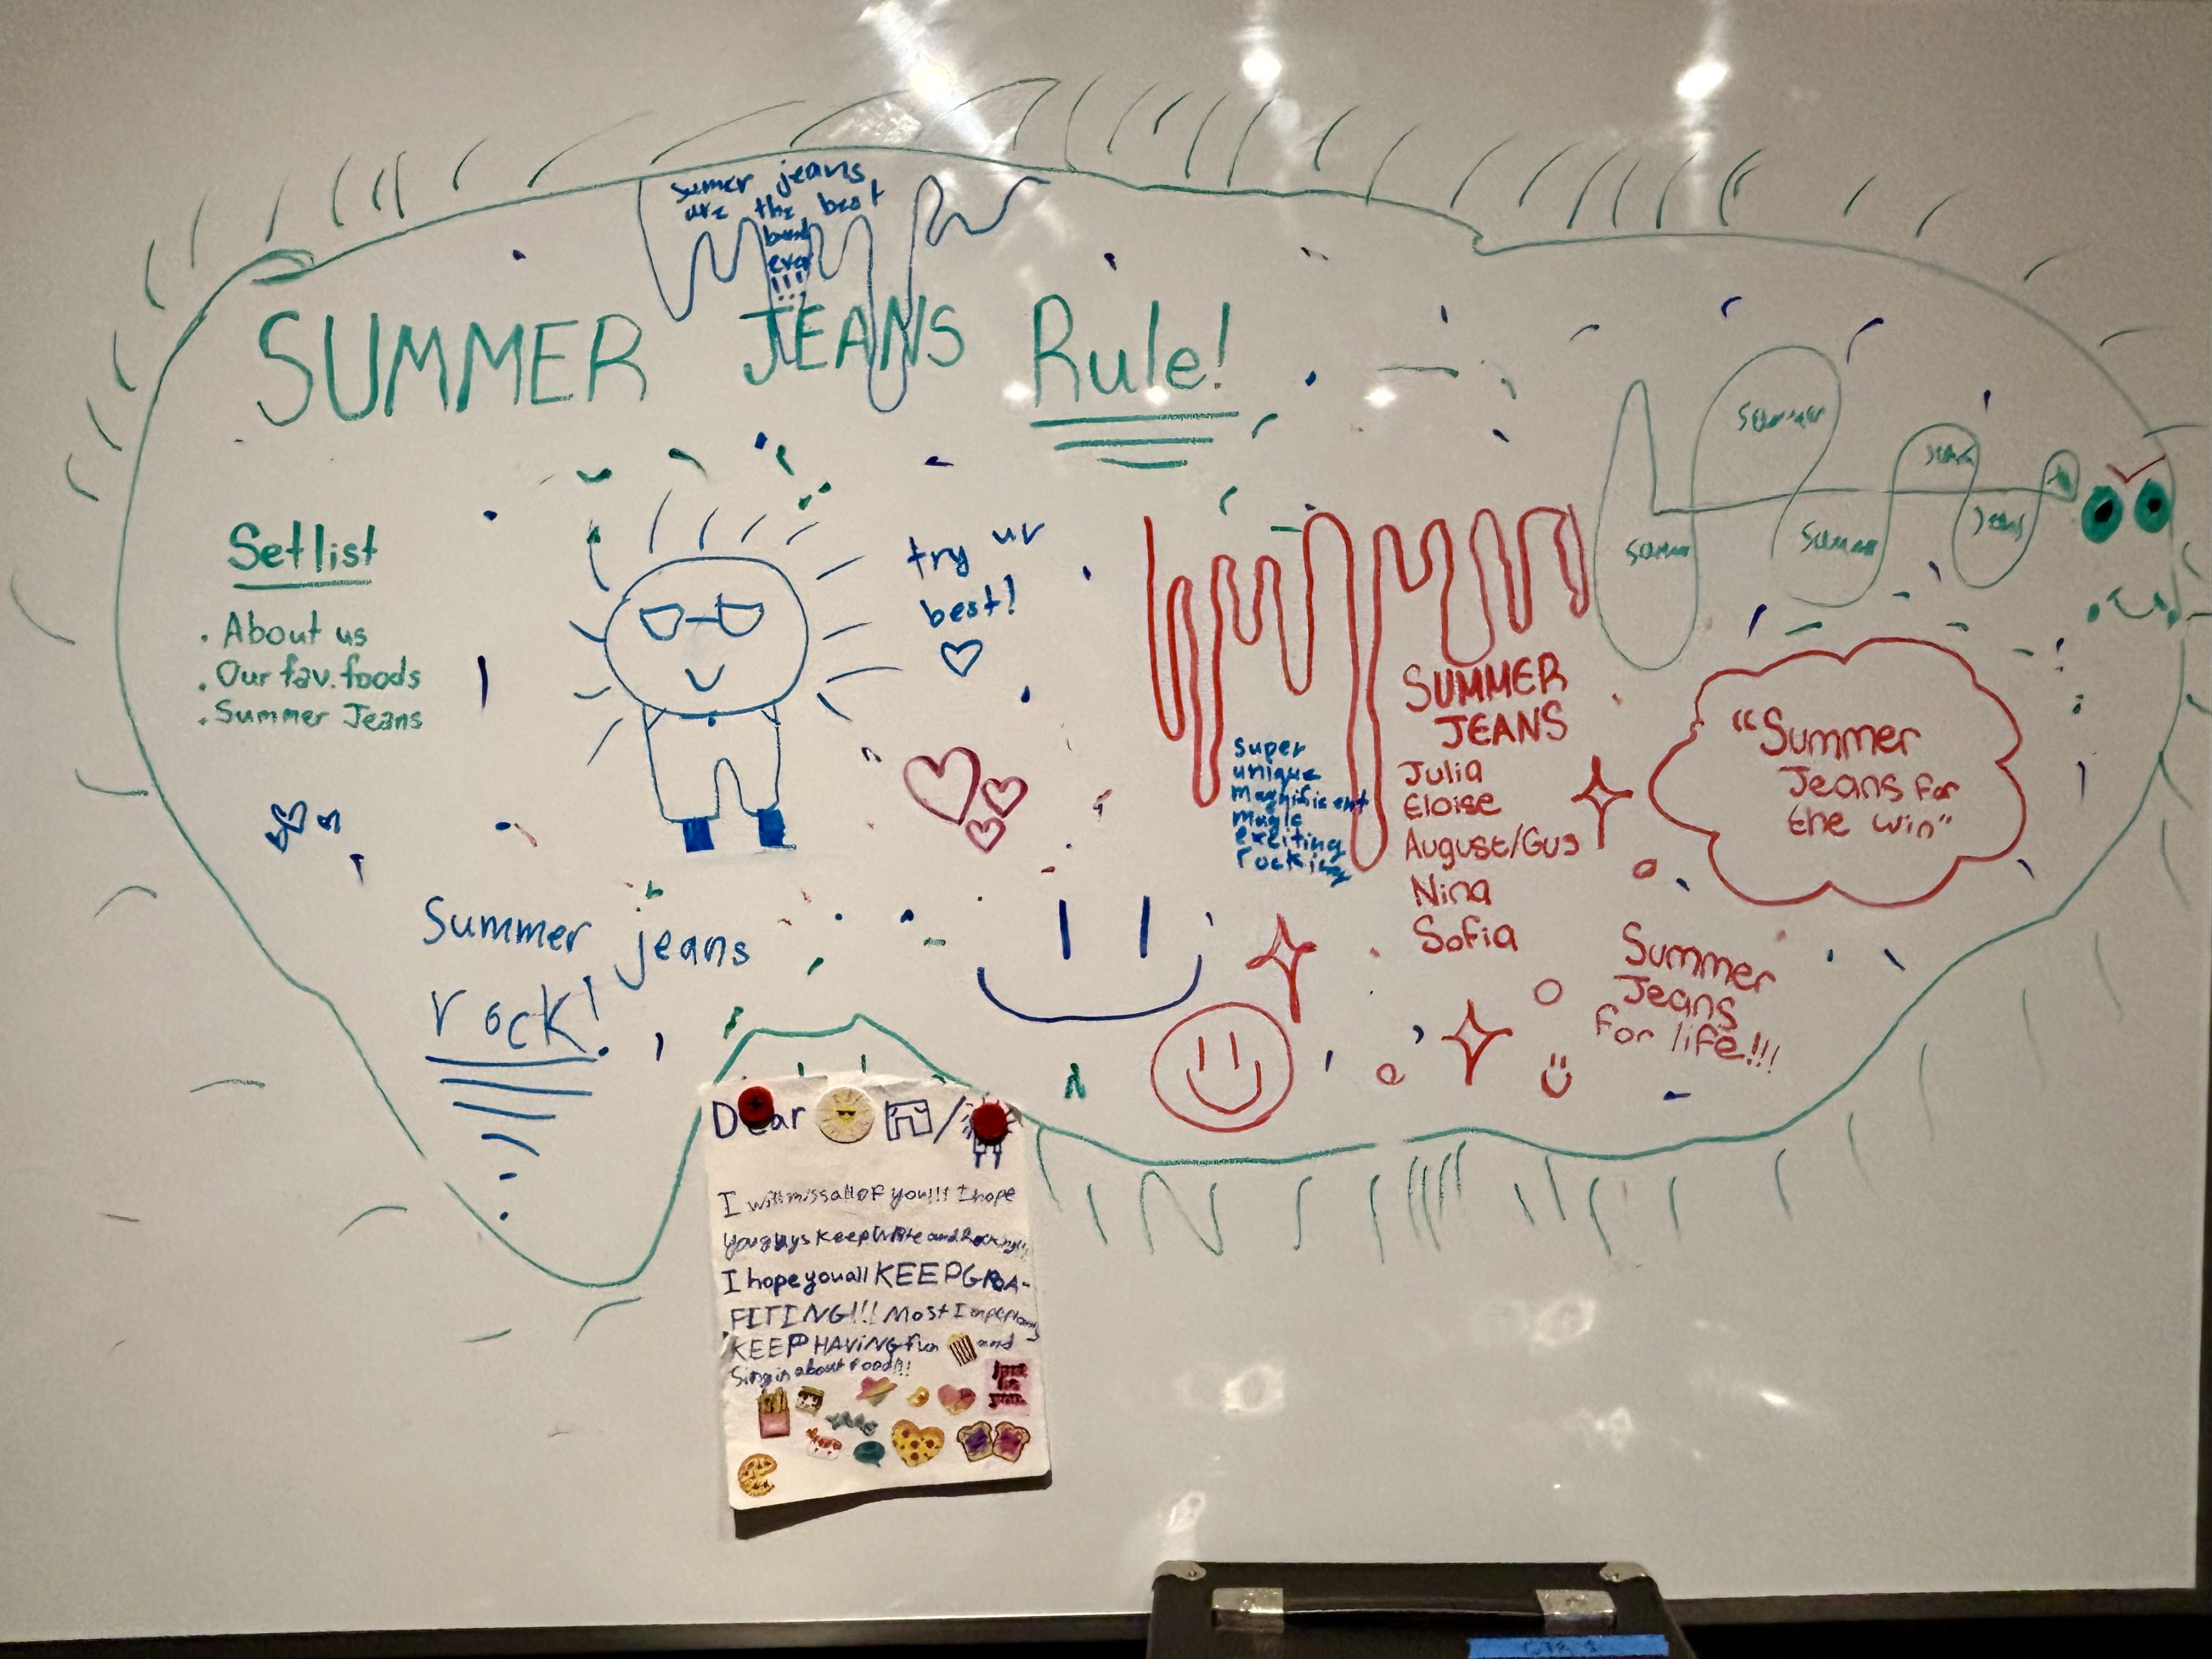 sumer jeans
are the best
band
ever
!!!
SUMMER JEANS Rule!
Setlist
. About us
. Our fav. foods
. Summer Jeans
try ur
best!
Summer
Jeans
Summer
Jeans
SUMMER
JEANS
Julia
Eloise
August/Gus
Nina
Sofia
super
unique
Magnificent
Magic
exciting
rocking
"Summer
Jeans for
the win"
Summer
Jeans
for life!!!
Summer jeans
rock!
Dear
I will miss all of you!!! I hope
you guys Keep and
I hope you all KEEP GRA-
FITING!!! Most
KEEP HAVING fun and
Singin about Food!!!